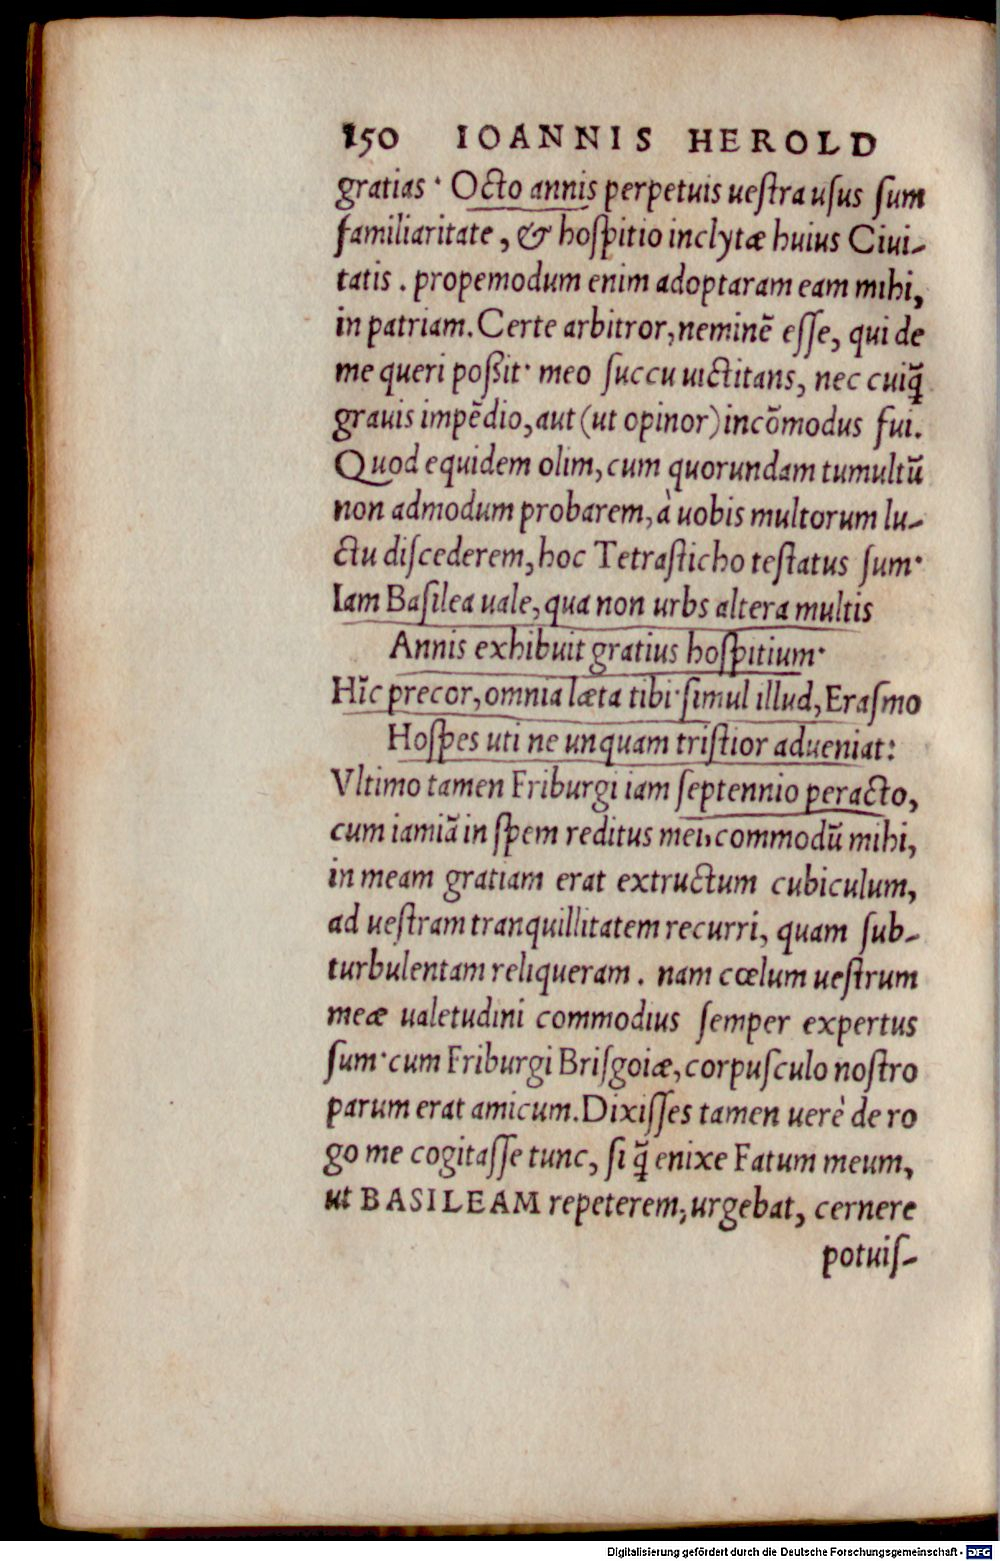 150 IOANNIS HEROLD
gratias · Octo annis perpetuis uestra usus sum
familiaritate, & hospitio inclytæ huius Ciui-
tatis. propemodum enim adoptaram eam mihi,
in patriam. Certe arbitror, neminē esse, qui de
me queri poßit· meo succu uictitans, nec cuiq̃
grauis impēdio, aut (ut opinor) incōmodus fui.
Quod equidem olim, cum quorundam tumultū
non admodum probarem, à uobis multorum lu-
ctu discederem, hoc Tetrasticho testatus sum·
Iam Basilea uale, qua non urbs altera multis
Annis exhibuit gratius hospitium·
Hīc precor, omnia læta tibi· simul illud, Erasmo
Hospes uti ne unquam tristior adueniat:
Vltimo tamen Friburgi iam septennio peracto,
cum iamiā in spem reditus mei, commodū mihi,
in meam gratiam erat extructum cubiculum,
ad uestram tranquillitatem recurri, quam sub-
turbulentam reliqueram. nam cœlum uestrum
meæ ualetudini commodius semper expertus
sum· cum Friburgi Brisgoiæ, corpusculo nostro
parum erat amicum. Dixisses tamen uerè de ro
go me cogitasse tunc, si q̃ enixe Fatum meum,
ut BASILEAM repeterem, urgebat, cernere
potuis-
Digitalisierung gefördert durch die Deutsche Forschungsgemeinschaft - DFG